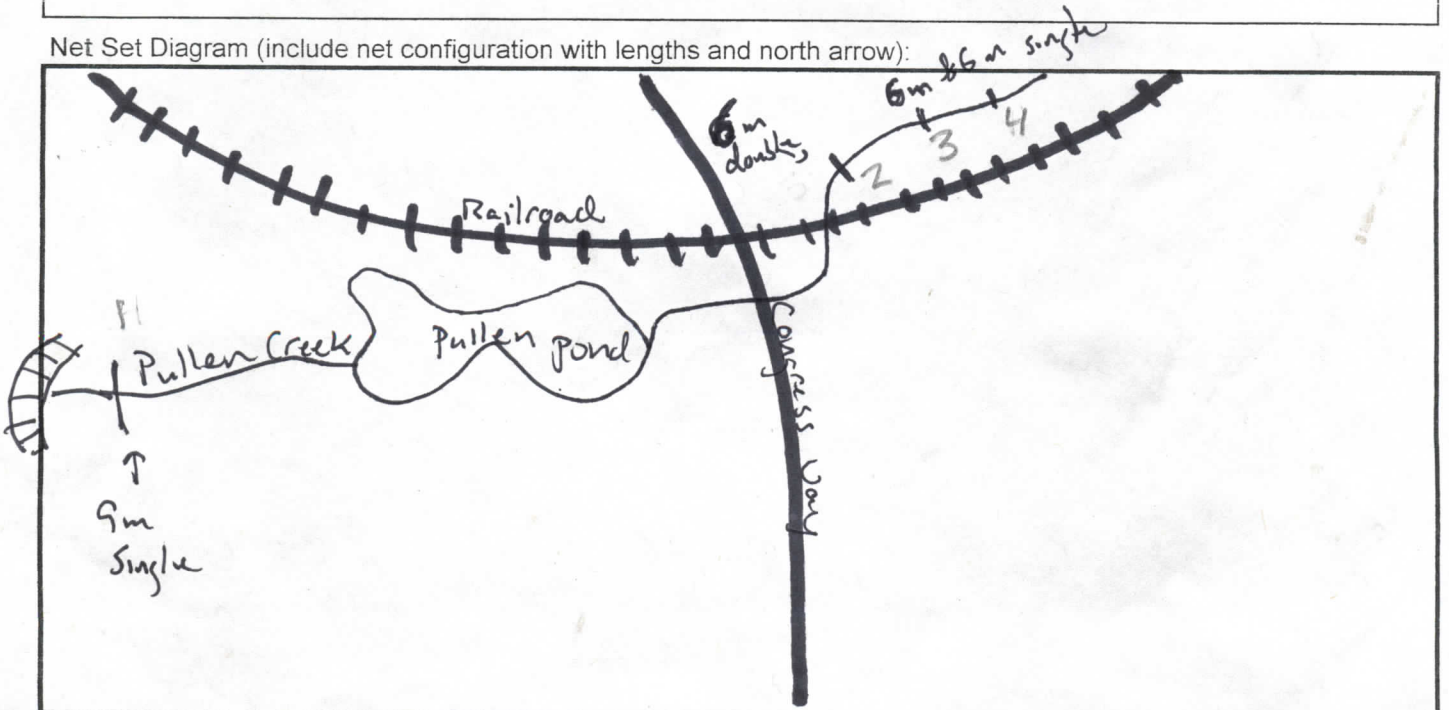 Net Set Diagram (include net configuration with lengths and north arrow):
6m & 6m single
6m
double
2
3
4
Railroad
Pullen Creek
Pullen pond
Congress Way
9m
Single